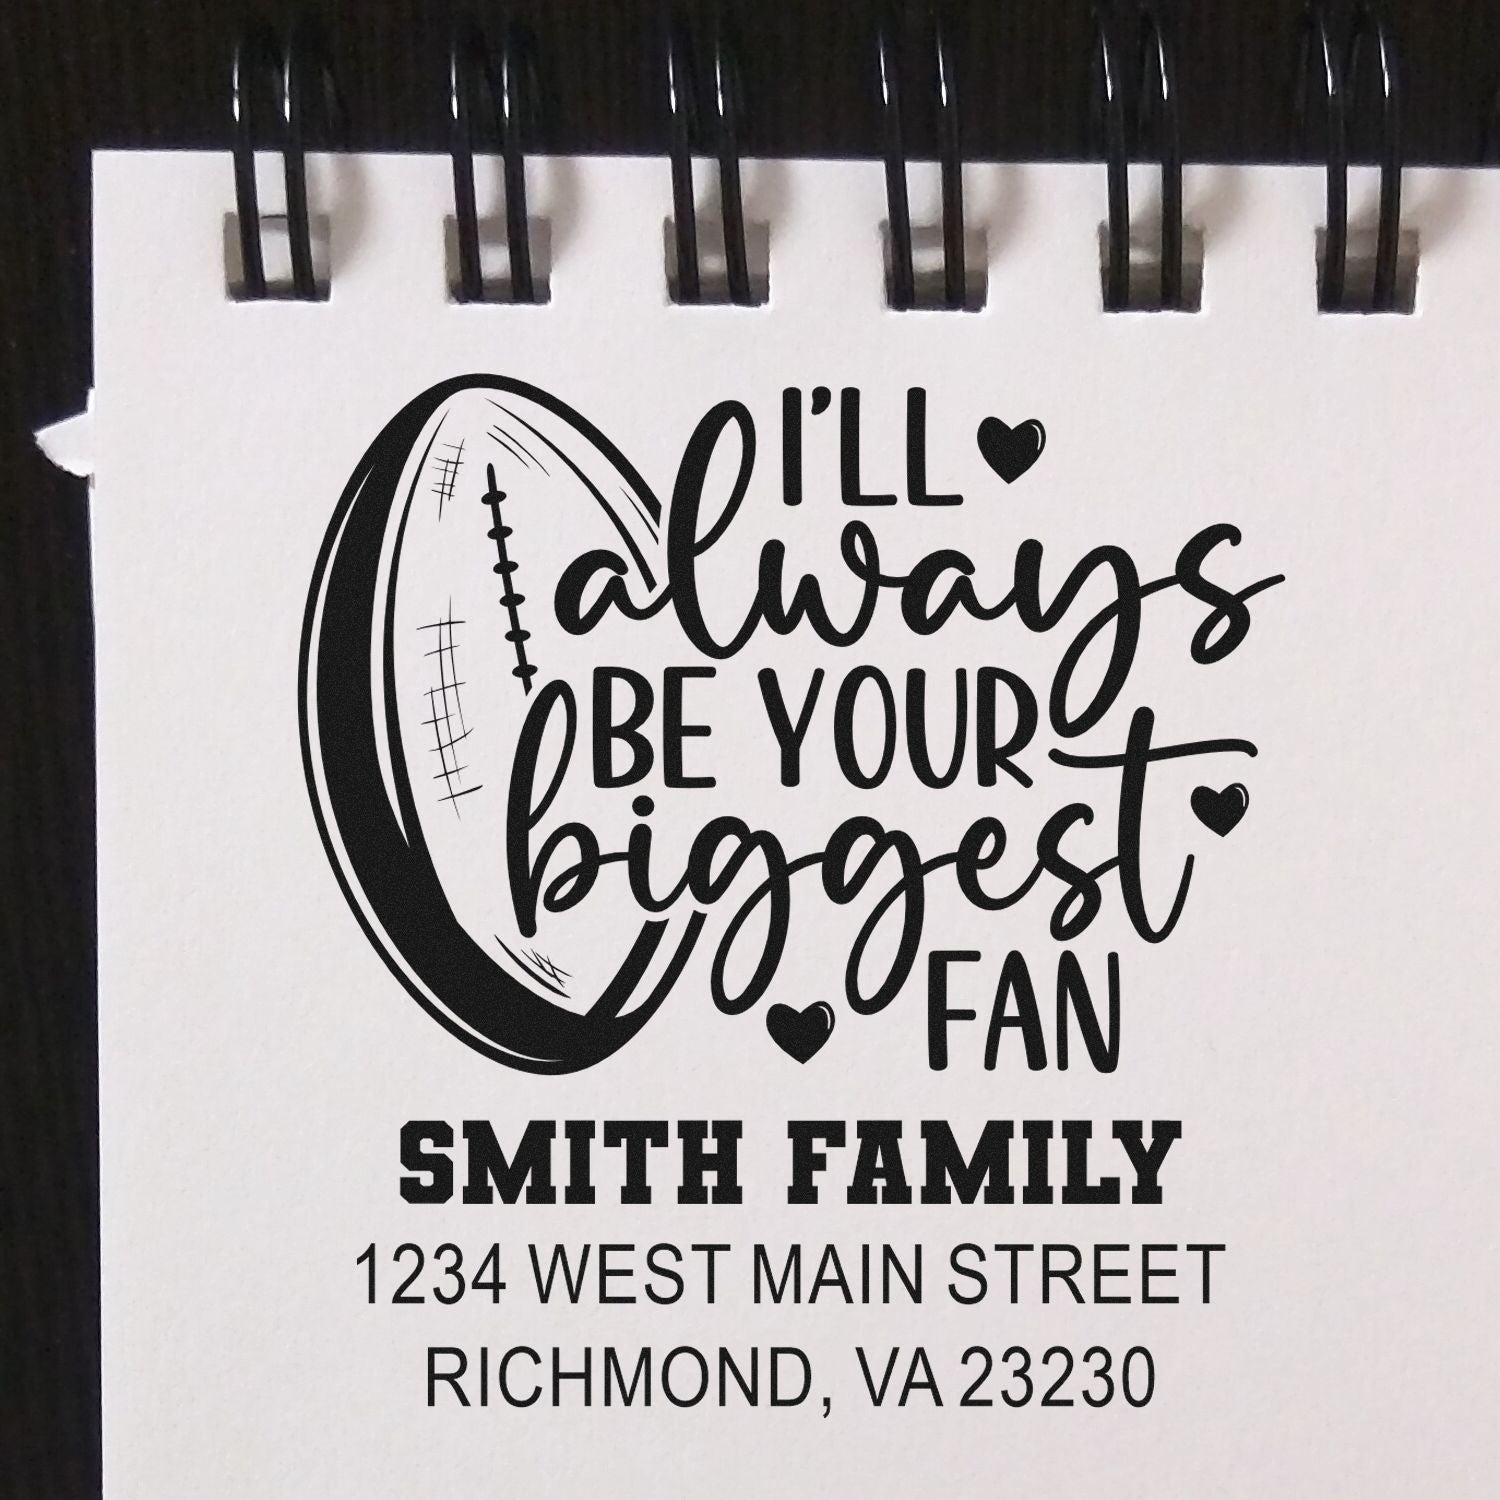 I'LL
always
BE YOUR
biggest
FAN
SMITH FAMILY
1234 WEST MAIN STREET
RICHMOND, VA 23230